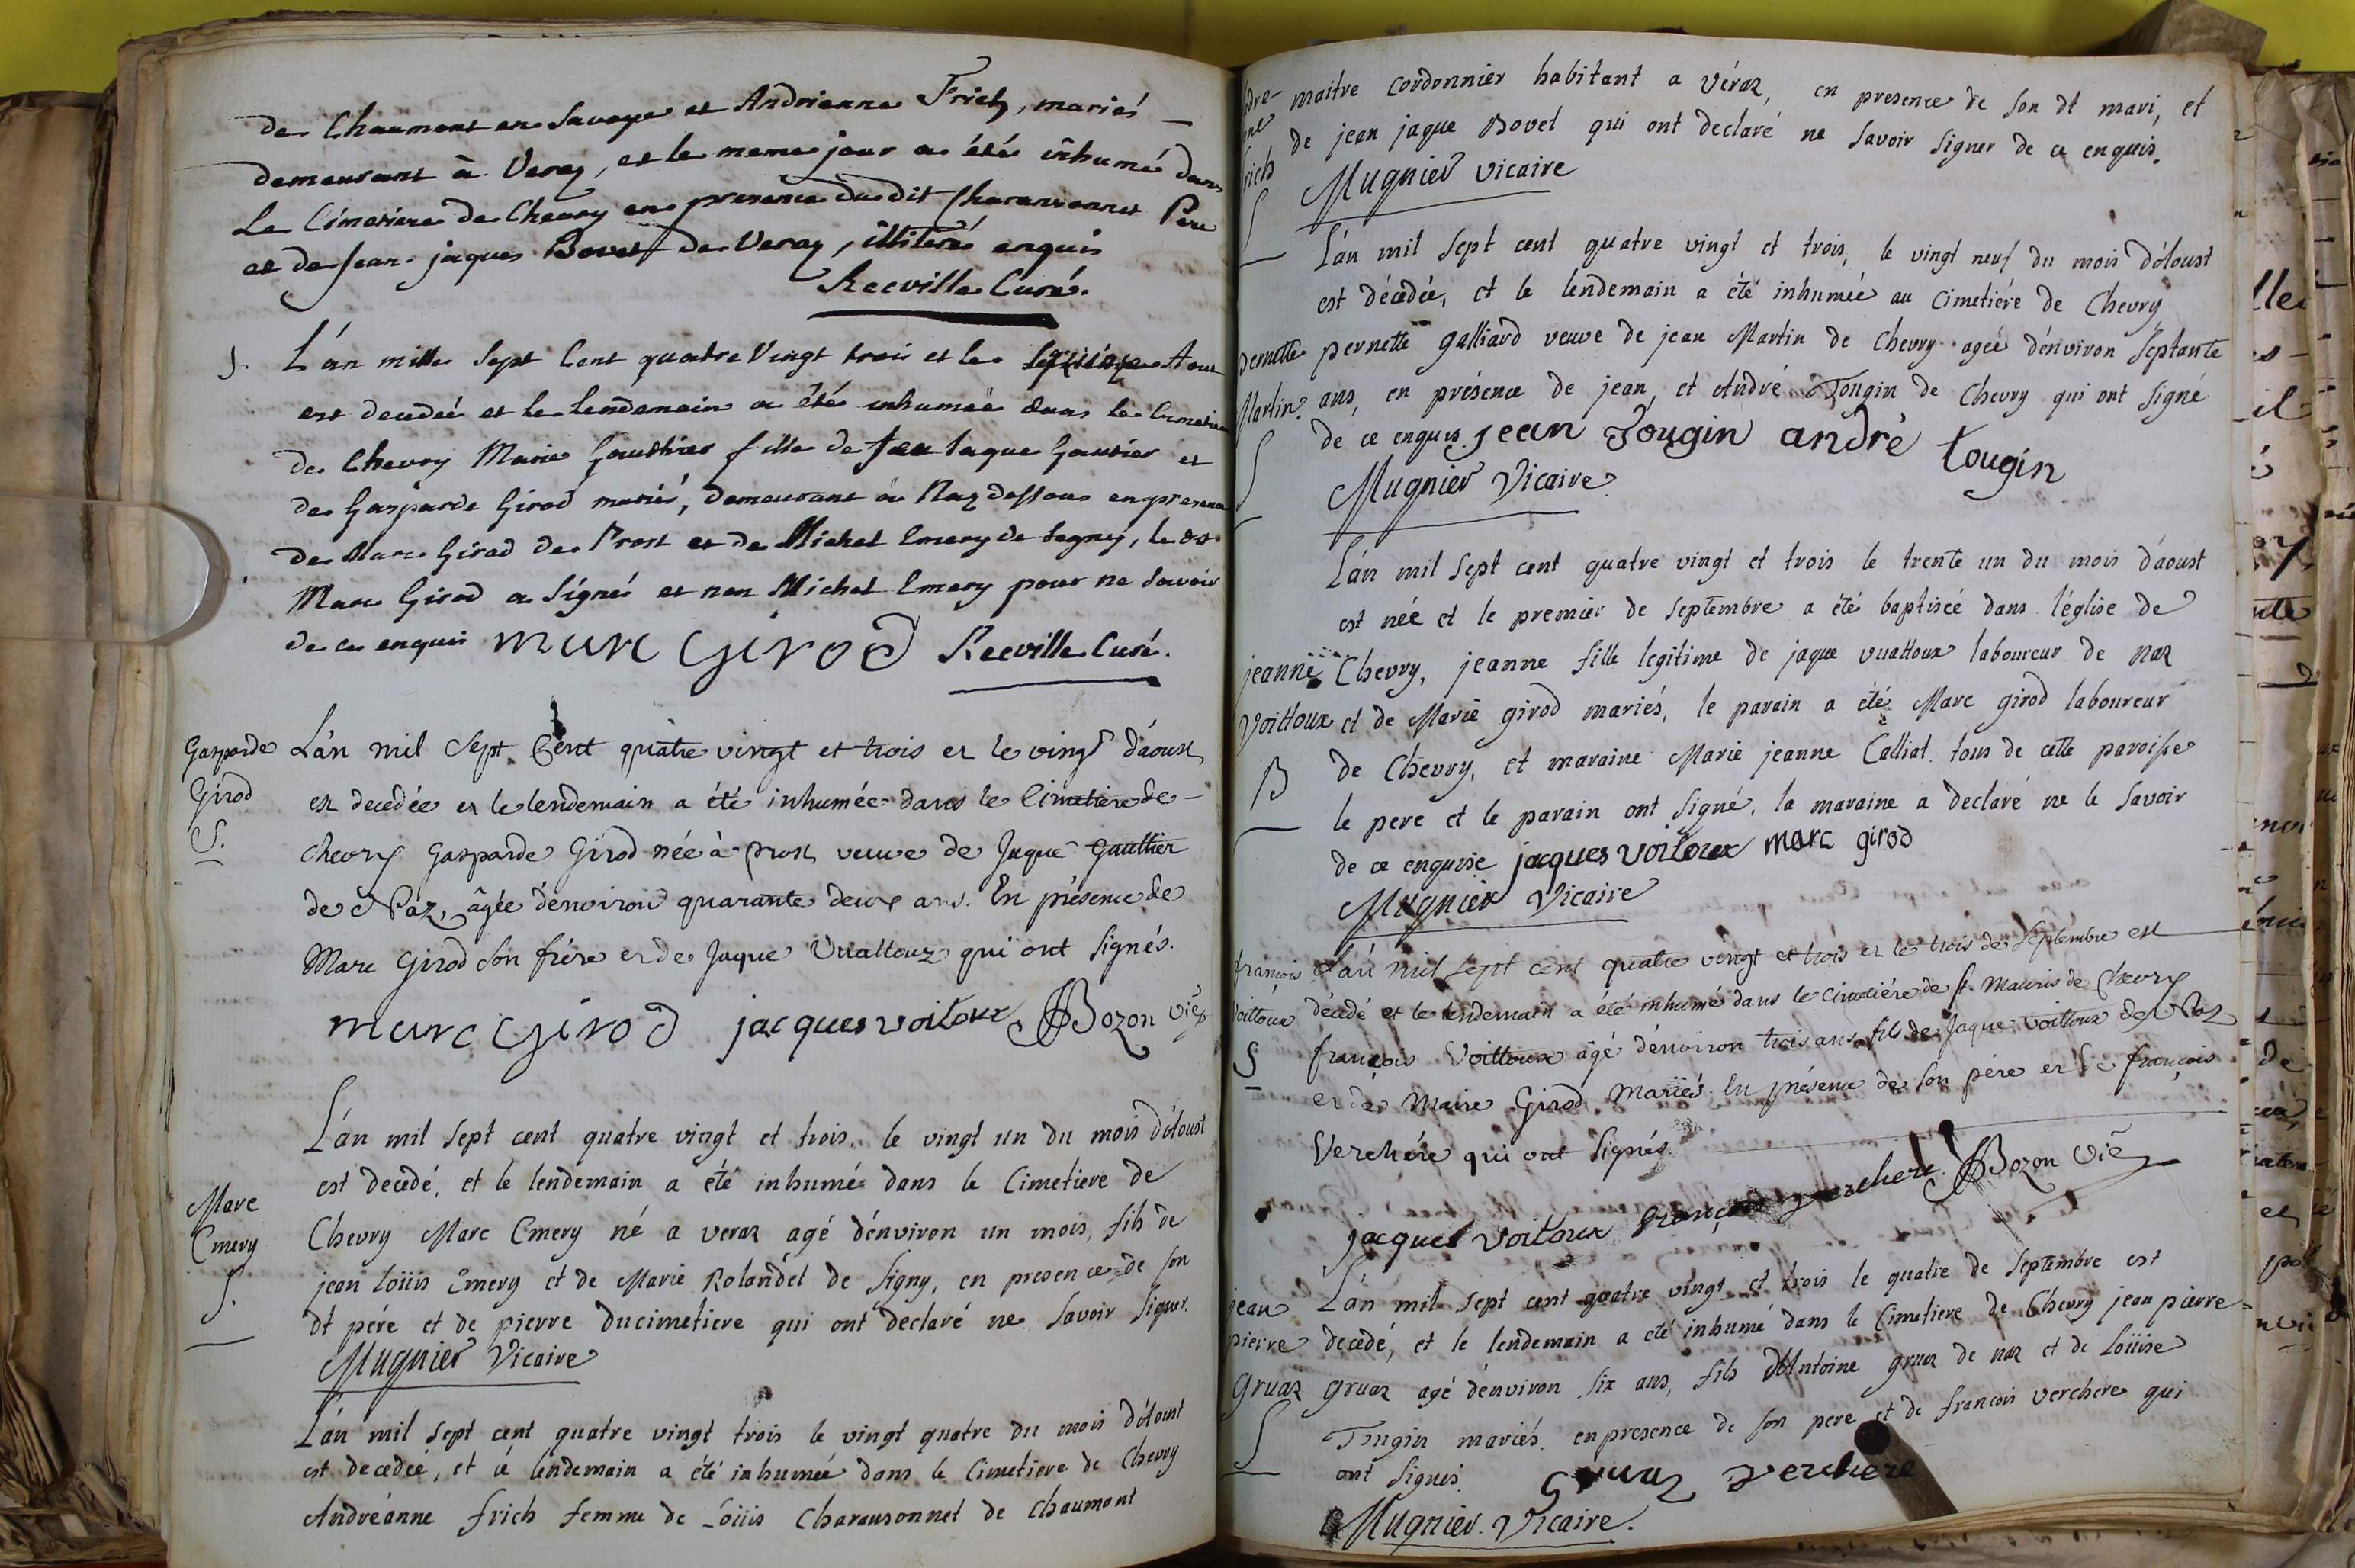 de Chaumont en Savoye et Andrienne Frich, mariés
demeurant à Veraz, et le meme jour a été inhumé dans
Le Cimetiere de Chevry en presence du dit Charansonnet Pere
et de Jean jaques Bovet de Veraz, illiterés enquis
Recville Curé.
S. L'an mille Sept Cent quatre Vingt trois et le quinze Aout
est decedeé et le lendemain a été inhumeé dans le Cimetiere
de Chevry Marie Gauthier fille de feu Jaque Gautier et
de Gasparde Girod mariés, demeurant à Naz dessous en presence
de Marc Girod de Prost et de Michel Emery de Segny, le dt
Marc Girod a Signé et non Michel Emery pour ne Savoir
de ce enquis marc Girod Recville Curé.
Gasparde
Girod
S.
L'an mil Sept Cent quatre vingt et trois et le vingt d'aoust
est decedée et le lendemain a été inhumée dans le Cimetiere de
chevry Gasparde Girod née à prost veuve de Jaque Gaultier
de Naz, âgée d'environ quarante deux ans. En présence de
Marc Girod Son frére et de Jaque Vuattoux qui ont Signés.
marc Girod jacques voitoux Bozon vic
Marc
Emery
S.
L'an mil Sept cent quatre vingt et trois, le vingt un du mois d'Aoust
est decedé, et le lendemain a été inhumé dans le Cimetiere de
Chevry Marc Emery né a veraz agé d'environ un mois, fils de
jean loüis Emery et de Marie Rolandet de Signy, en presence de son
dt pére et de pierre ducimetiere qui ont declaré ne Savoir Signer.
Mugnier Vicaire
L'an mil Sept cent quatre vingt trois le vingt quatre du mois d'Aoust
est decedeé, et le lendemain a été inhumeé dans le Cimetiere de Chevry
Andréanne frich femme de Loüis Charansonnet de Chaumont
maitre Cordonnier habitant a Véraz, en presence de Son dt mari, et
de jean jaque Bovet qui ont declaré ne Savoir Signer de ce enquis.
Mugnier vicaire
L'an mil Sept cent quatre vingt et trois, le vingt neuf du mois d'Aoust
est décedée, et le lendemain a été inhumée au Cimetiére de Chevry
pernette Martin. S
pernette galliard veuve de jean Martin de Chevry agée d'environ Septante
ans, en présence de jean, et André Tougin de Chevry qui ont Signé
de ce enquis. jean Tougin andrè tougin
Mugnier Vicaire
L'an mil Sept cent quatre vingt et trois le trente un du mois d'aoust
est née et le premier de Septembre a été baptiseé dans l'église de
jeanne
Voittoux
B
Chevry, jeanne fille legitime de jaque vuattoux laboureur de naz
et de Marie girod mariés, le parain a été Marc girod laboureur
de Chevry, et maraine Marie jeanne Calliat tous de cette paroisse
le pere et le parain ont Signé, la maraine a declaré ne le Savoir
de ce enquise jacques voitoux marc girod
Mugnier Vicaire
françois
Voittoux
S
L'an mil sept cent quatre vingt et trois et le trois de Septembre est
décedé et le lendemain a été inhumé dans le Cimetiére de St. Mauris de Chevry
françois Voittoux âgé d'environ trois ans, fils de Jaque Voittoux de Naz
et de Marie Girod Mariés. En présence de Son pére et de françois
Verchére qui ont Signés.
jacques voitoux françois verchere Bozon vic
jean
pierre
Gruaz
S
L'an mil Sept cent quatre vingt et trois le quatre de Septembre est
decedé, et le lendemain a été inhumé dans le Cimetiere de Chevry jean pierre
Gruaz agé d'environ Six ans, fils d'Antoine gruaz de naz et de Loüise
Tougin mariés. en presence de Son pere et de francois verchere qui
ont Signés. gruaz verchere
Mugnier Vicaire.